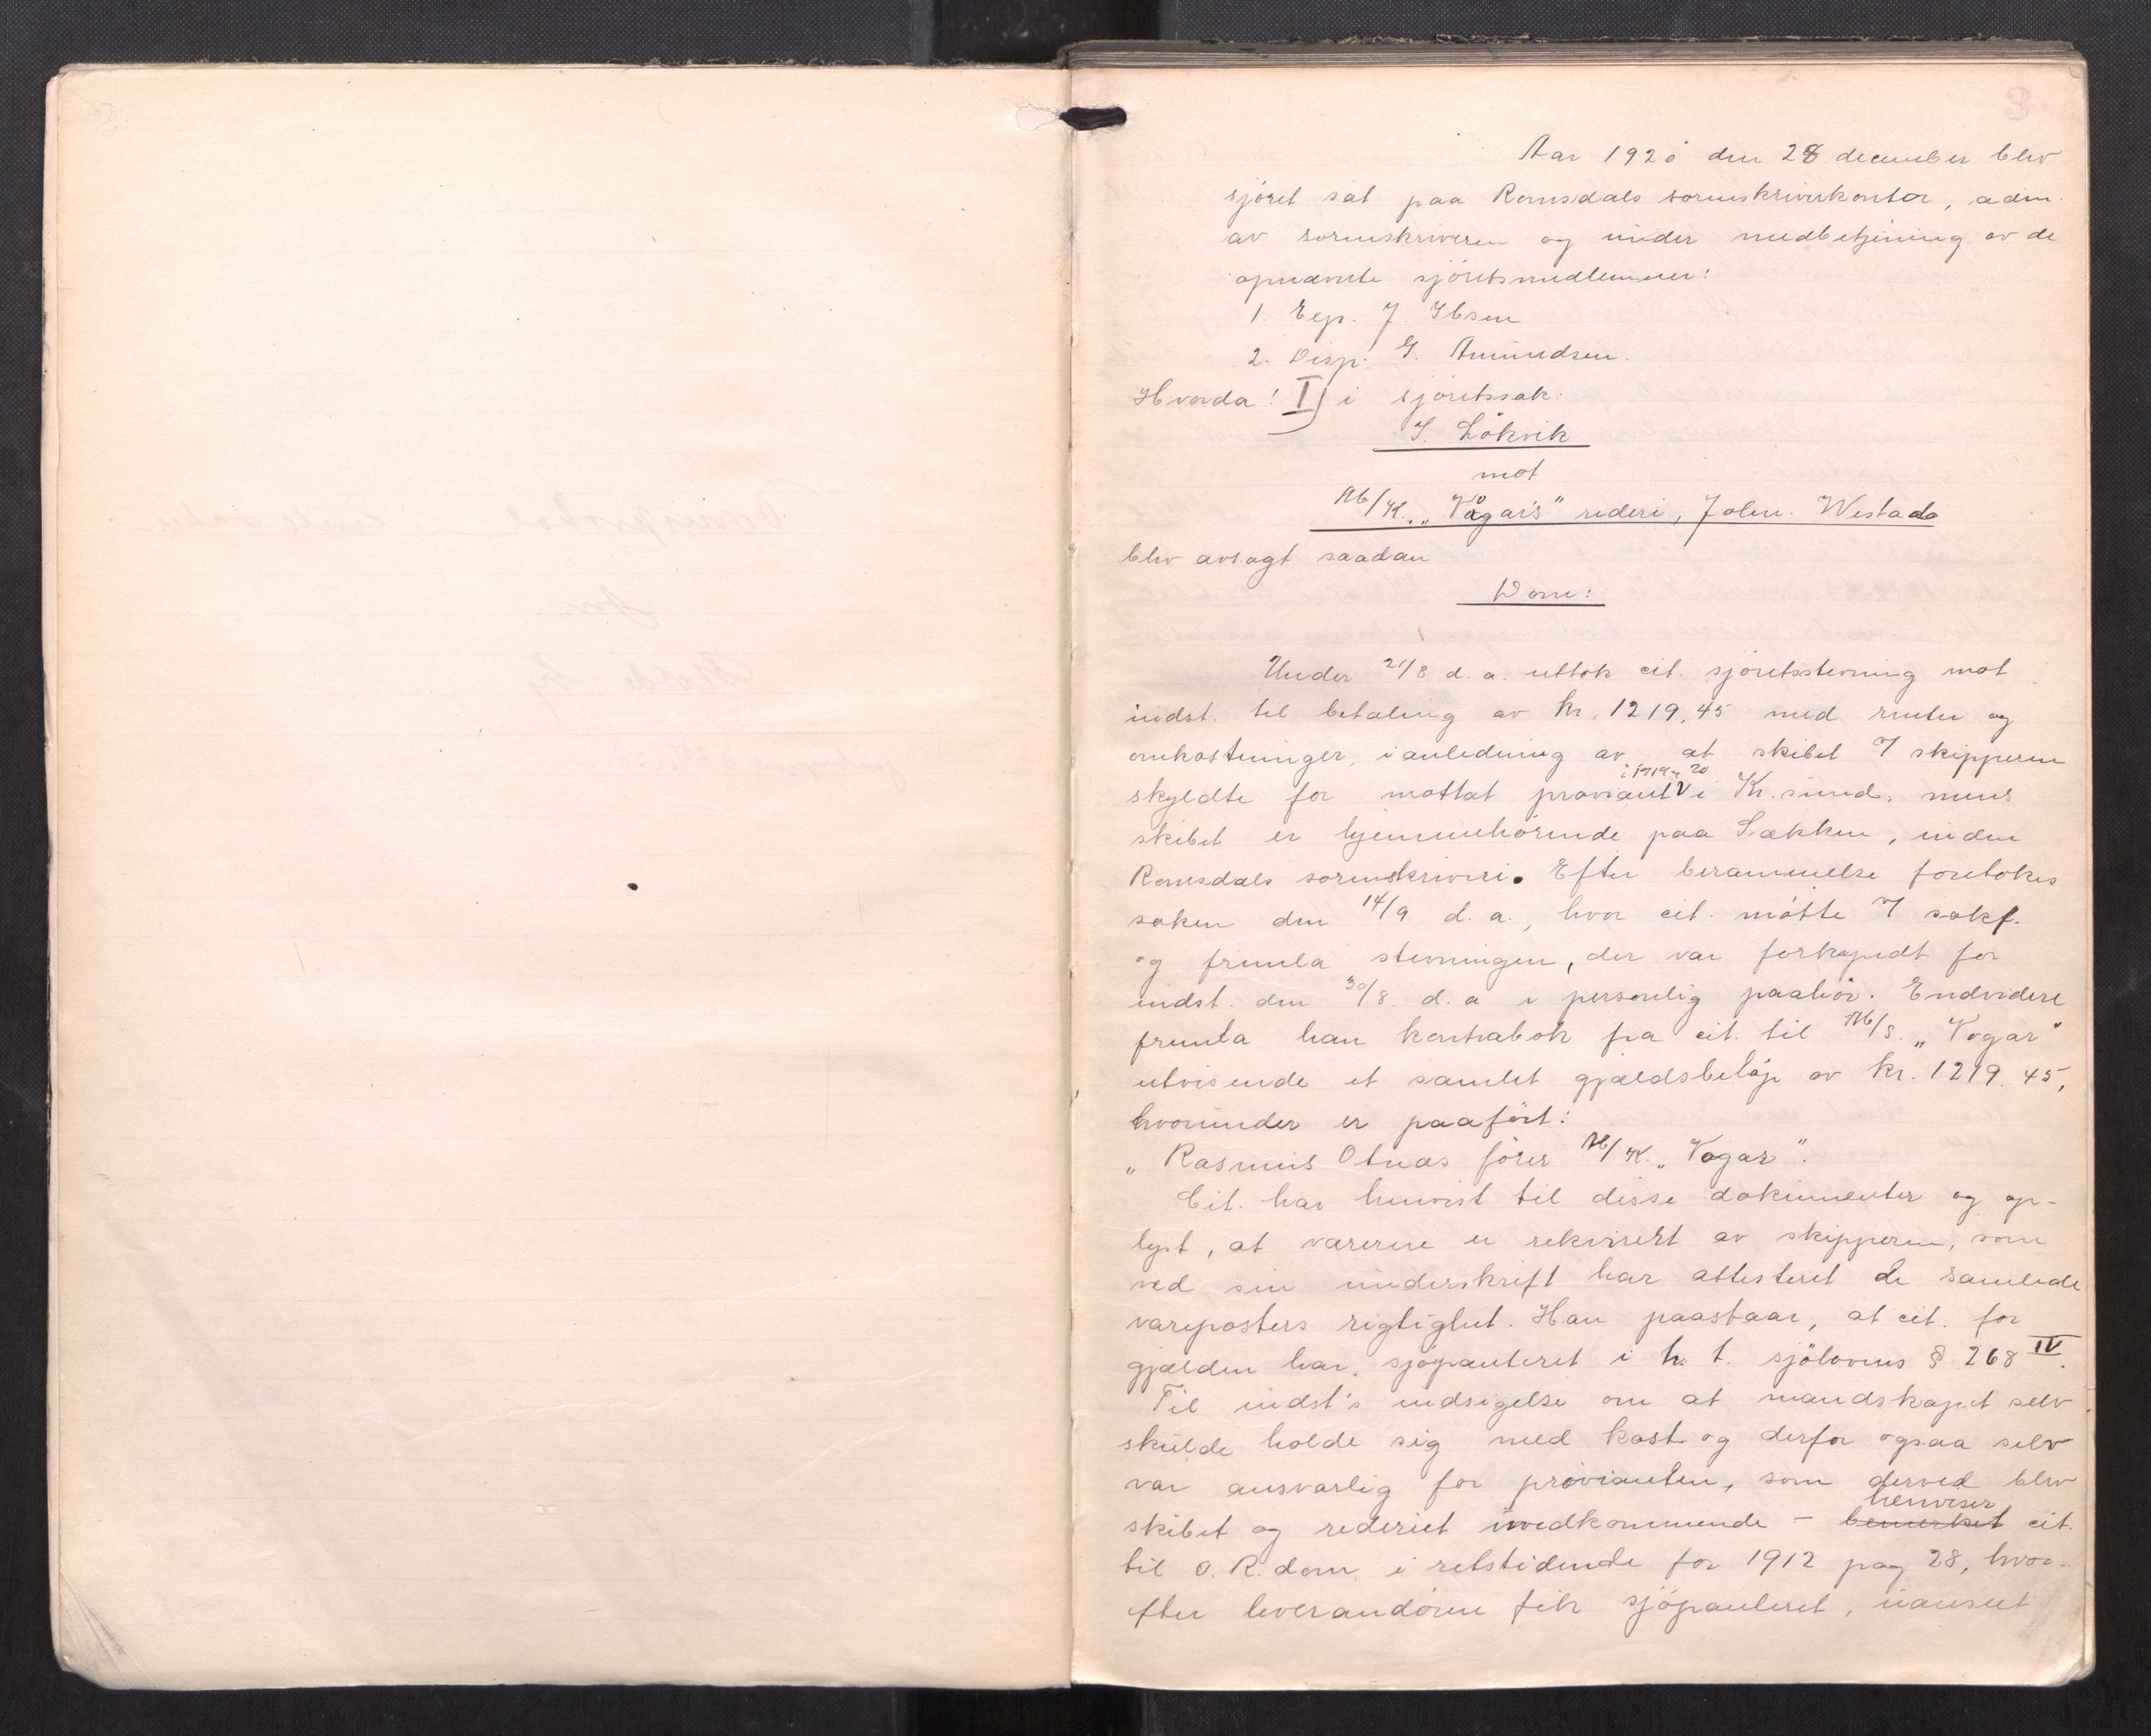 3
Aar 1920 den 28 december blev
sjöret sat paa Romsdals sorenskriverkontor, adm.
av sorenskriveren og under medbetjening av de
opnævnte sjöretsmedlemmer:
1. Exp. J. Ibsen
2. Disp. G. Amundsen.
Hvorda: I) i sjöretssak:
I. Lökvik
mot
M/K. „Vågar's" rederi, John. Westad
blev avsagt saadan
Dom:
Under 21/8 d. a. uttok cit. sjöretsstevning mot
indst. til betaling av kr. 1219.45 med renter og
omkostninger, i anledning av at skibet v/ skipperen
i 1919-20
skyldte for mottat proviant V i Kr.sund, mens
skibet er hjemmehörende paa Sækken, inden
Romsdals sorenskriveri. Efter berammelse foretokes
saken den 14/9 d. a., hvor cit. mötte v/ sakf.
og fremla stevningen, der var forkyndt for
indst. den 30/8. d. a i personlig paahör. Endvidere
fremla han kontrabok fra cit. til M/S. „Vogar"
utvisende et samlet gjældsbelöp av kr. 1219.45,
hvorunder er paafört:
„Rasmus Otnæs förer M/K. „Vogar".
Cit. har henvist til disse dokumenter og op-
lyst, at varerne er rekvirert av skipperen, som
ved sin underskrift har attesteret de samlede
vareposters rigtighet. Han paastaar, at cit. for
gjælden har sjöpanteret i h. t. sjölovens § 268 IV.
Til indst's indsigelse om at mandskapet selv
skulde holde sig med kost og derfor ogsaa selv
var ansvarlig for provianten, som derved blev
henviser
skibet og rederiet uvedkommende - bemerket cit.
til O. R. dom i retstidende for 1912 pag 28, hvor-
efter leverandören fik sjöpanteret, uanset